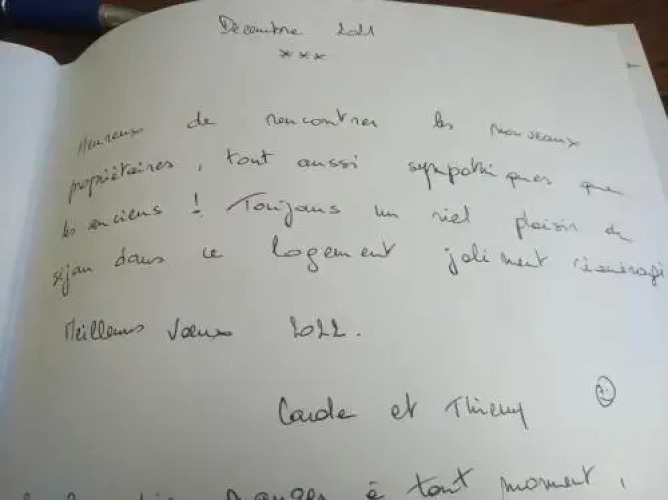 Décembre 2021
***
Heureux de rencontrer les nouveaux
propriétaires, tout aussi sympathiques que
les anciens ! Toujours un réel plaisir du
séjour dans ce logement joliment réaménagé
Meilleurs Vœux 2022.
Carole et Thierry
à tout moment,